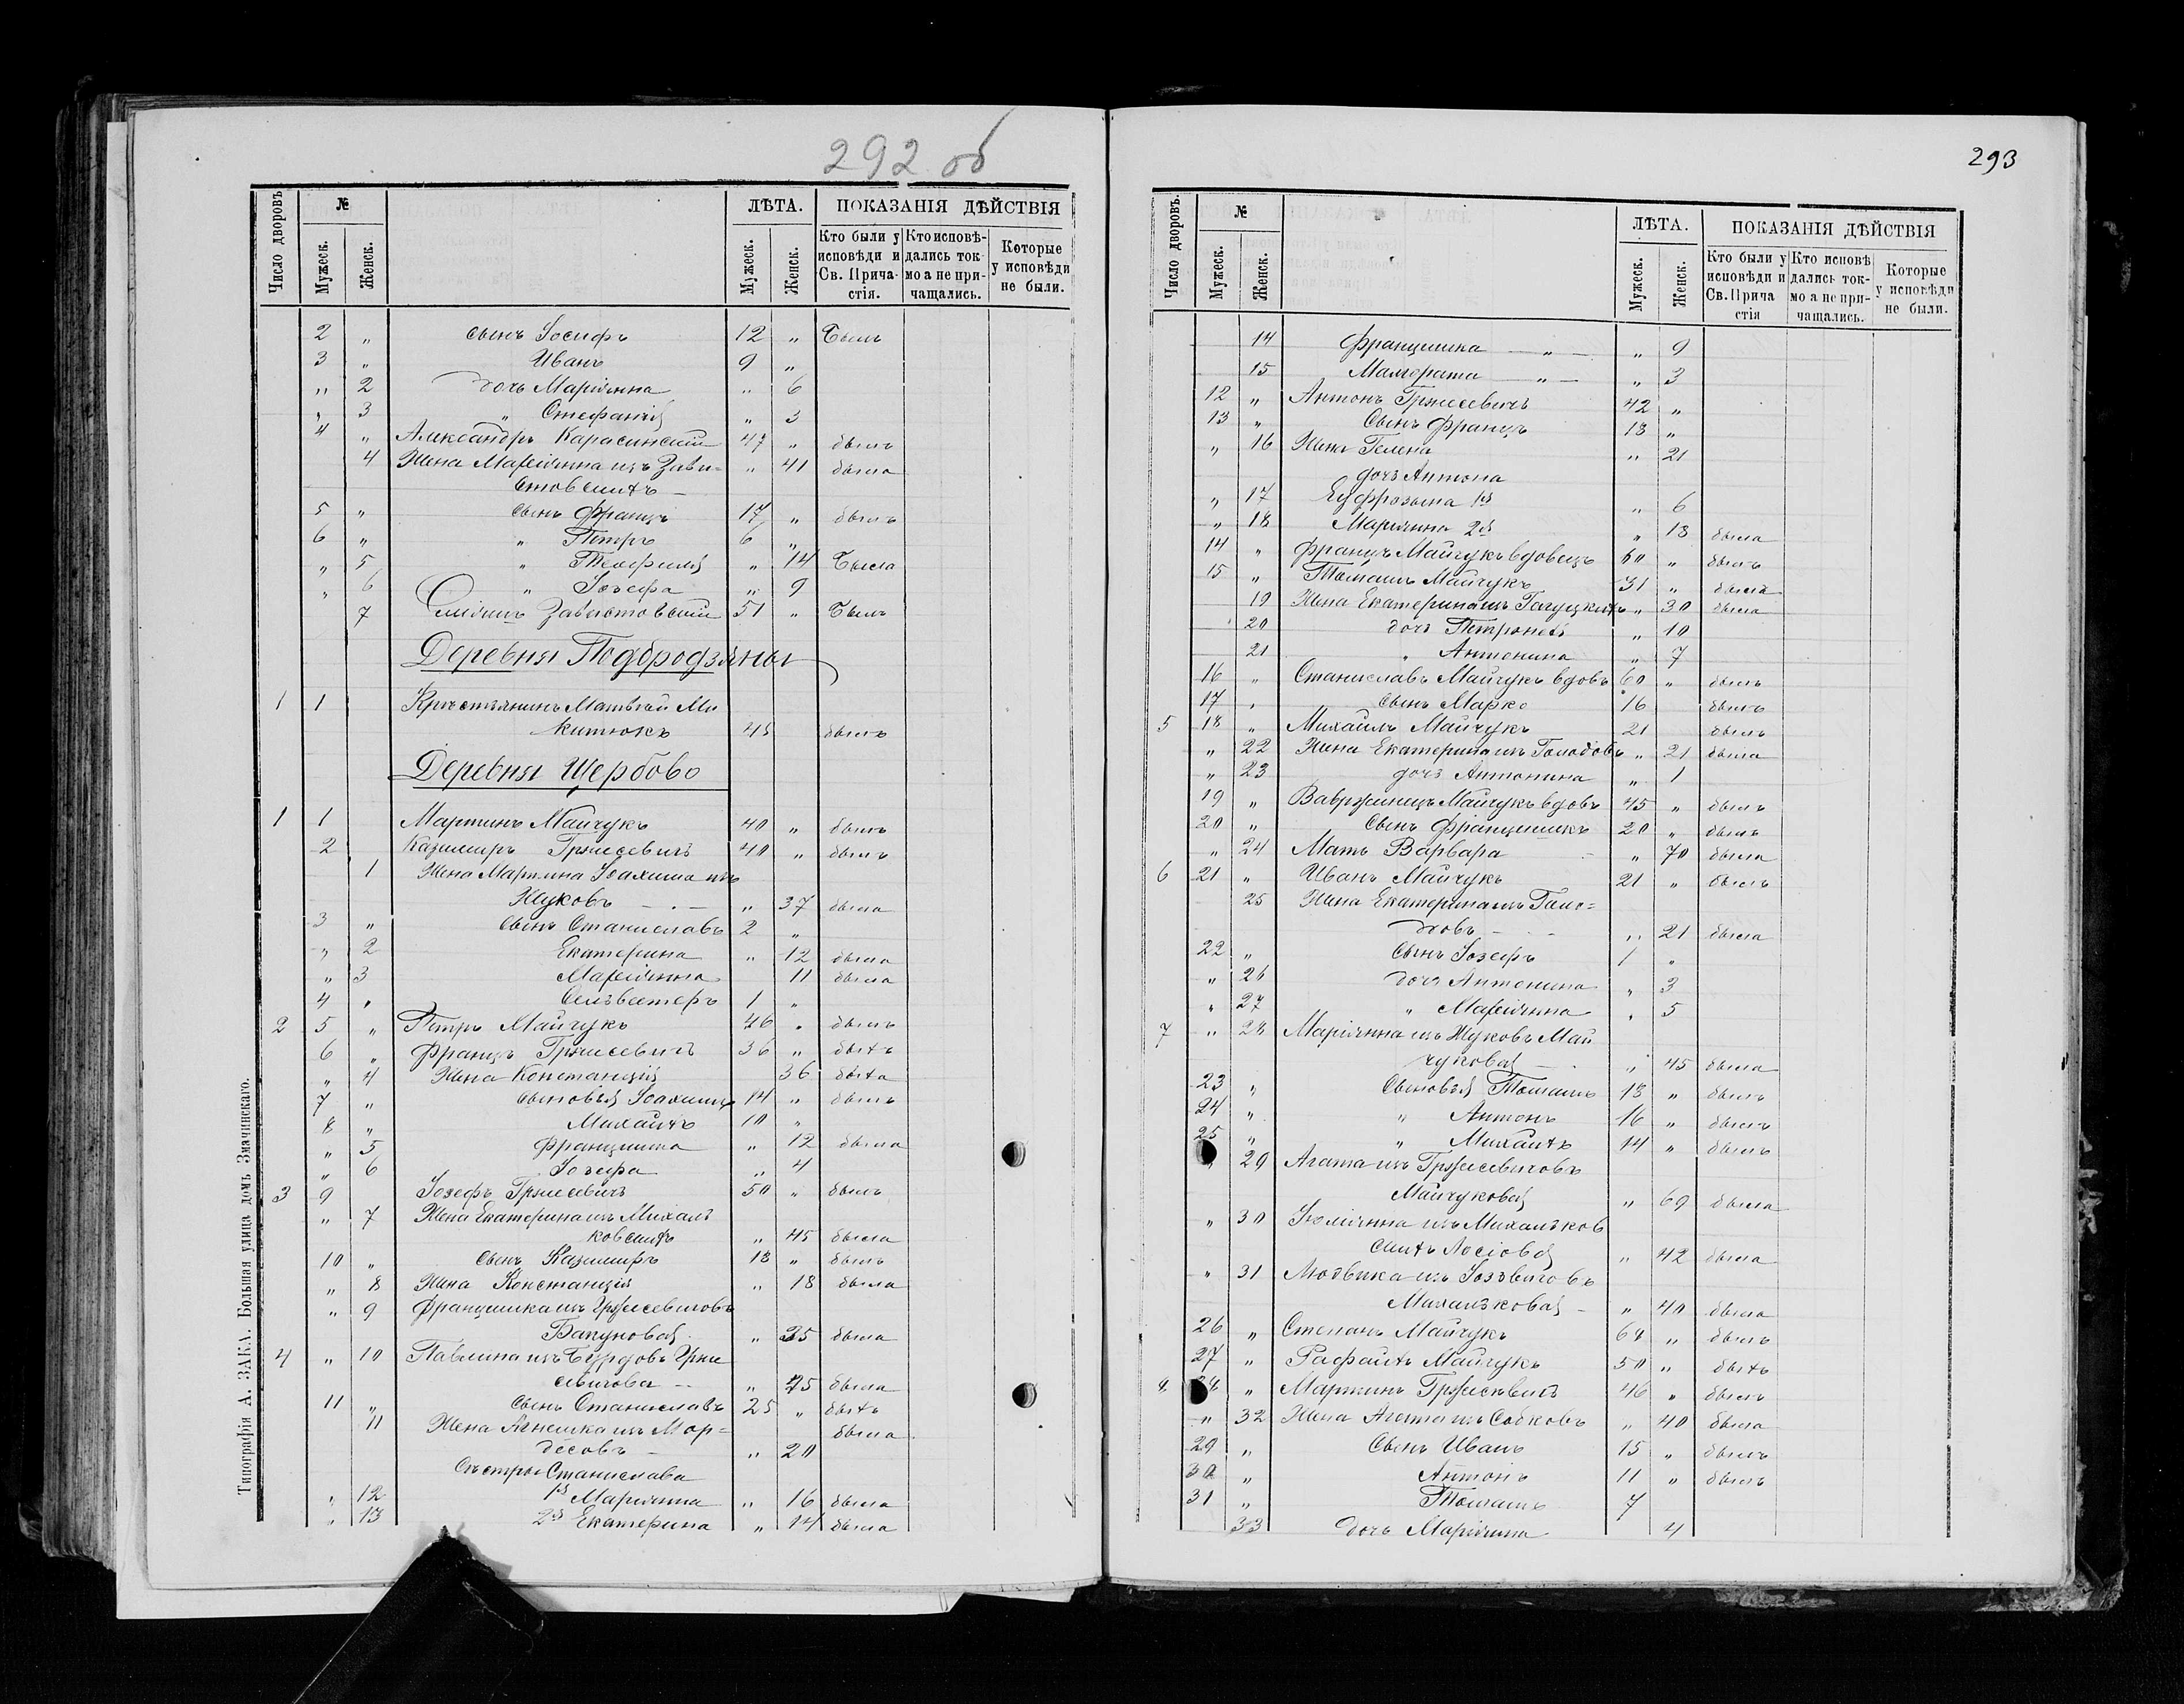 292 об
Число дворовъ
№
ЛѢТА.
ПОКАЗАНІЯ ДѢЙСТВІЯ
Мужеск.
Женск.
Мужеск.
Женск.
Кто были у исповѣди и Св. Прича-стія.
Кто исповѣ-дались ток-мо а не при-чащались.
Которые у исповѣди не были.
2 „ сынъ Іосифъ 12 „ Былъ
3 „ Иванъ 9 „
„ 2 дочь Маріянна „ 6
„ 3 „ Стефанія „ 3
4 „ Александръ Карасинскій 47 „ былъ
4 Жена Маріянна изъ Зави- „ 41 была
стовскихъ
5 „ сынъ Францъ 17 „ былъ
6 „ „ Петръ 6 „
„ 5 „ Теофилія „ 14 Была
„ 6 „ Іозефа „ 9
7 Завистовскій 51 „ Былъ
Деревня Подбродзяны
1 1 Крестьянинъ Матвей Ми
китюкъ 45 былъ
Деревня Щербово
1 1 Мартинъ Майчукъ 40 „ былъ
2 Казимиръ Гржесевичъ 40 „ былъ
1 Жена Мартина Іоахима изъ
Жуковъ „ 37 была
3 „ сынъ Станиславъ 2 „
„ 2 Екатерина „ 12 была
„ 3 Маріянна 11 была
4 „ Сильвестеръ 1 „
2 5 „ Петръ Майчукъ 46 „ былъ
6 „ Францъ Гржесевичъ 36 „ былъ
„ 4 Жена Констанція 36 была
7 „ сыновья Іоахимъ 14 „ былъ
8 „ Михаилъ 10 „
„ 5 Францишка „ 12 была
„ 6 Іозефа „ 4
3 9 Іозефъ Гржесевичъ 50 „ былъ
„ 7 Жена Екатерина изъ Михаль
ковскихъ „ 45 была
10 „ сынъ Казимиръ 18 „ былъ
„ 8 Жена Констанція „ 18 была
„ 9 Францишка изъ Гржесевичовъ
Бакуновая „ 25 была
4 „ 10 Павлина изъ Бурдовъ Грже
севичова „ 75 была
11 „ сынъ Станиславъ 25 „ былъ
11 Жена Агнешка изъ Мор= была
десовъ „ 20
Сѣстры Станислава
„ 12 1я Маріянна „ 16 была
„ 13 2я Екатерина „ 14 была
Типографія А. ЗАКА. Большая улица домъ Змачинскаго.
293
Число дворовъ.
№
ЛѢТА.
ПОКАЗАНІЯ ДѢЙСТВІЯ
Мужеск.
Женск.
Мужеск.
Женск.
Кто были у исповѣди и Св. Прича стія
Кто исповѣ дались ток-мо а не при-чащались.
Которые у исповѣди не были.
14 Францишка „ „ 9
15 Малгората „ „ 3
12 „ Антонъ Гржесевичъ 42 „
13 „ сынъ Францъ 18 „
„ 16 Жена Гелена „ 21
дочь Антона
„ 17 Еуфрозына 1я „ 6
„ 18 Маріянна 2я „ 13 была
14 „ Францъ Майчукъ вдовецъ 60 „ былъ
15 „ Томашъ Майчукъ 31 „ былъ
19 Жена Екатерина изъ „ 30 была
20 дочь Петронеля „ 10
21 „ Антонина „ 7
16 „ Станиславъ Майчукъ вдовъ 60 „ былъ
17 „ сынъ Марко 16 былъ
5 18 „ Михаилъ Майчукъ 21 былъ
„ 22 Жена Екатерина изъ Голодовъ „ 21 была
„ 23 дочь Антонина „ 1
19 „ Вавржинецъ Майчукъ вдовъ 45 „ былъ
20 „ сынъ Францишекъ 20 „ былъ
„ 24 Мать Варвара „ 70 была
6 21 „ Иванъ Майчукъ 21 „ былъ
25 Жена Екатерина изъ Голо=
довъ „ 21 была
22 „ сынъ Іозефъ 1 „
„ 26 дочь Антонина „ 3
„ 27 „ Маріянна „ 5
7 „ 28 Маріянна изъ Жуковъ Май
чуковая „ 45 была
23 „ сыновья Томашъ 18 „ былъ
24 „ „ Антонъ 16 „ былъ
25 „ „ Михаилъ 14 „ былъ
„ 29 Агата изъ Гржесевичовъ
Майчуковая „ 69 была
„ 30 Юліянна изъ Михальков
скихъ Лосіовая „ 42 была
„ 31 Людвика изъ
Михальковая „ 40 была
26 „ Степанъ Майчукъ 64 „ былъ
27 „ Рафаилъ Майчукъ 50 „ былъ
8 28 „ Мартинъ Гржесевичъ 46 „ былъ
„ 32 Жена Агата изъ Собковъ „ 40 была
29 „ сынъ Иванъ 15 „ былъ
30 „ Антонъ 11 „ былъ
31 „ Томашъ 7
33 дочь Маріянна 4